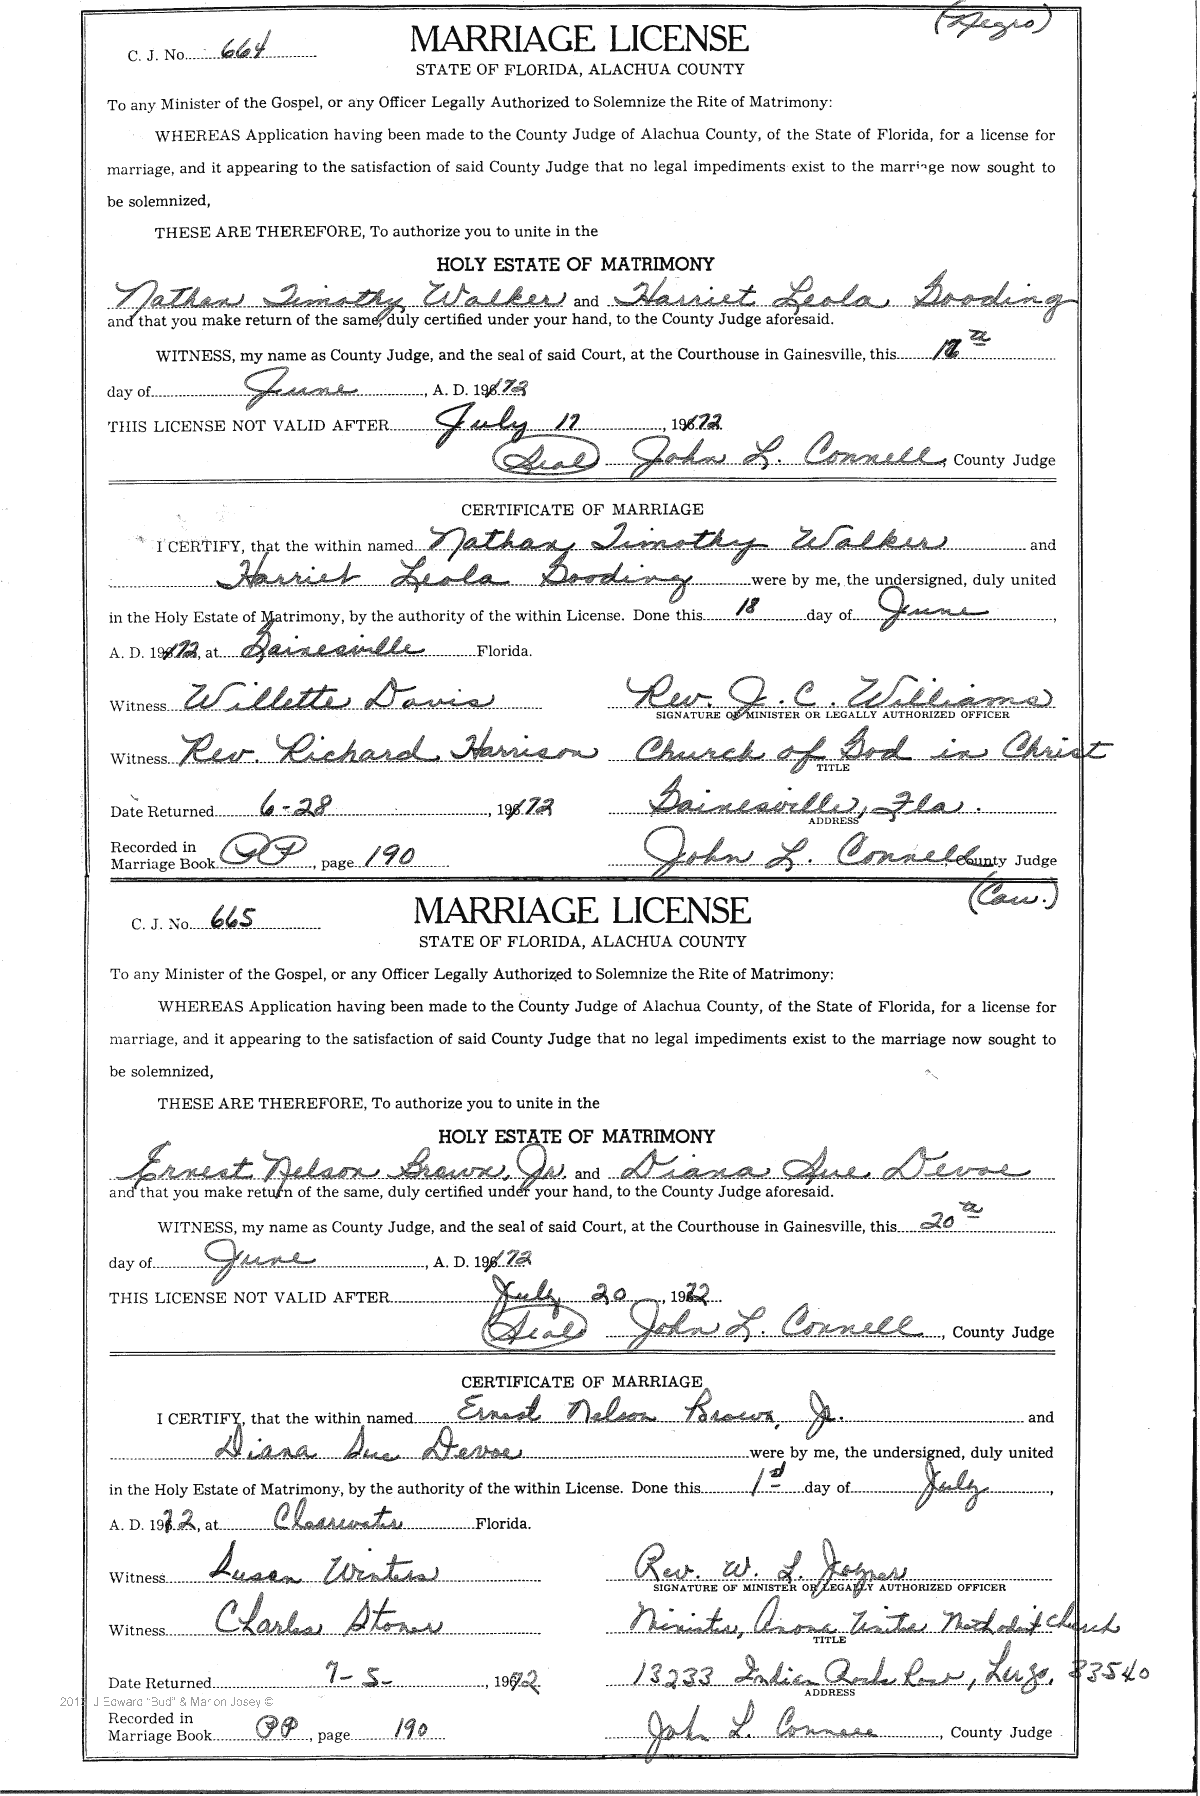 (Negro)
C. J. No. 664
MARRIAGE LICENSE
STATE OF FLORIDA, ALACHUA COUNTY
To any Minister of the Gospel, or any Officer Legally Authorized to Solemnize the Rite of Matrimony:
WHEREAS Application having been made to the County Judge of Alachua County, of the State of Florida, for a license for
marriage, and it appearing to the satisfaction of said County Judge that no legal impediments exist to the marriage now sought to
be solemnized,
THESE ARE THEREFORE, To authorize you to unite in the
HOLY ESTATE OF MATRIMONY
Nathan Timothy Walker and Harriet Leola Gooding
and that you make return of the same, duly certified under your hand, to the County Judge aforesaid.
WITNESS, my name as County Judge, and the seal of said Court, at the Courthouse in Gainesville, this
day of June, A. D. 1972
THIS LICENSE NOT VALID AFTER July 17, 1972
(Seal) John L. Connell, County Judge
CERTIFICATE OF MARRIAGE
I CERTIFY, that the within named Nathan Timothy Walker and
Harriet Leola Gooding were by me, the undersigned, duly united
in the Holy Estate of Matrimony, by the authority of the within License. Done this 18 day of June,
A. D. 1972, at Gainesville Florida.
Witness Willette Davis Rev. J. C. Williams
SIGNATURE OF MINISTER OR LEGALLY AUTHORIZED OFFICER
Witness Rev. Richard Harrison Church of God in Christ
TITLE
Date Returned 6-28, 1972 Gainesville, Fla.
ADDRESS
Recorded in
Marriage Book PP, page 190 John L. Connell County Judge
(Cau.)
C. J. No. 665
MARRIAGE LICENSE
STATE OF FLORIDA, ALACHUA COUNTY
To any Minister of the Gospel, or any Officer Legally Authorized to Solemnize the Rite of Matrimony:
WHEREAS Application having been made to the County Judge of Alachua County, of the State of Florida, for a license for
marriage, and it appearing to the satisfaction of said County Judge that no legal impediments exist to the marriage now sought to
be solemnized,
THESE ARE THEREFORE, To authorize you to unite in the
HOLY ESTATE OF MATRIMONY
Ernest Nelson Brown, Jr. and Diana Sue Devoe
and that you make return of the same, duly certified under your hand, to the County Judge aforesaid.
WITNESS, my name as County Judge, and the seal of said Court, at the Courthouse in Gainesville, this 20th
day of June, A. D. 1972
THIS LICENSE NOT VALID AFTER July 20, 1972
(Seal) John L. Connell, County Judge
CERTIFICATE OF MARRIAGE
I CERTIFY, that the within named Ernest Nelson Brown, Jr. and
Diana Sue Devoe were by me, the undersigned, duly united
in the Holy Estate of Matrimony, by the authority of the within License. Done this day of July,
A. D. 1972, at Clearwater Florida.
Witness Susan Winters Rev. W. L. Joyner
SIGNATURE OF MINISTER OR LEGALLY AUTHORIZED OFFICER
Witness Charles Stoner Minister, Anona United Methodist Church
TITLE
Date Returned 7-5-, 1972 13233 Indian Rocks Road, Largo, 33540
ADDRESS
J Edward "Bud" & Marion Josey ©
Recorded in
Marriage Book PP, page 190 John L. Connell, County Judge